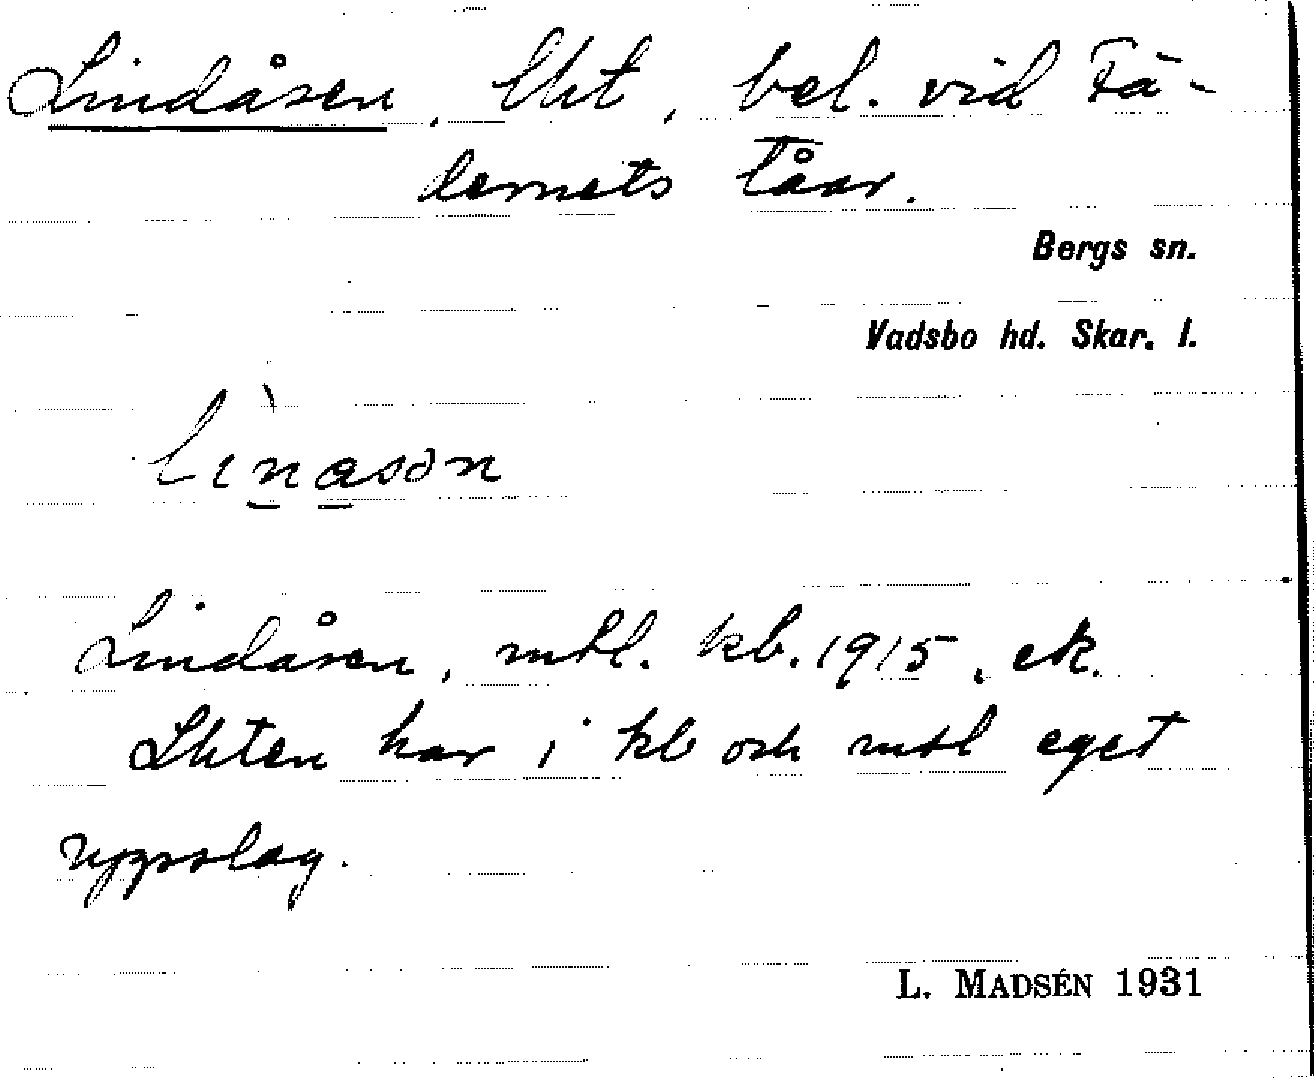 Lindåsen, lht, bel. vid Fä-
dernets Tåar.
Bergs sn.
Vadsbo hd. Skar. l.
lìnasən
Lindåsen, mtl. kb. 1915, ek.
Lhten har i kb och mtl eget
uppslag.
L. MADSÉN 1931